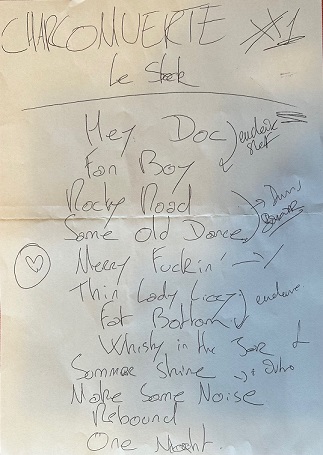 CHARCOMUERTE X1
Le Steck
Hey Doc
Fan Boy
Rocky Road
Same Old Dance
Merry Fuckin'
Thin Lady Lizzy
Fat Bottom
Whisky in the Jar
Summer Shine
Make Some Noise
Rebound
One Night